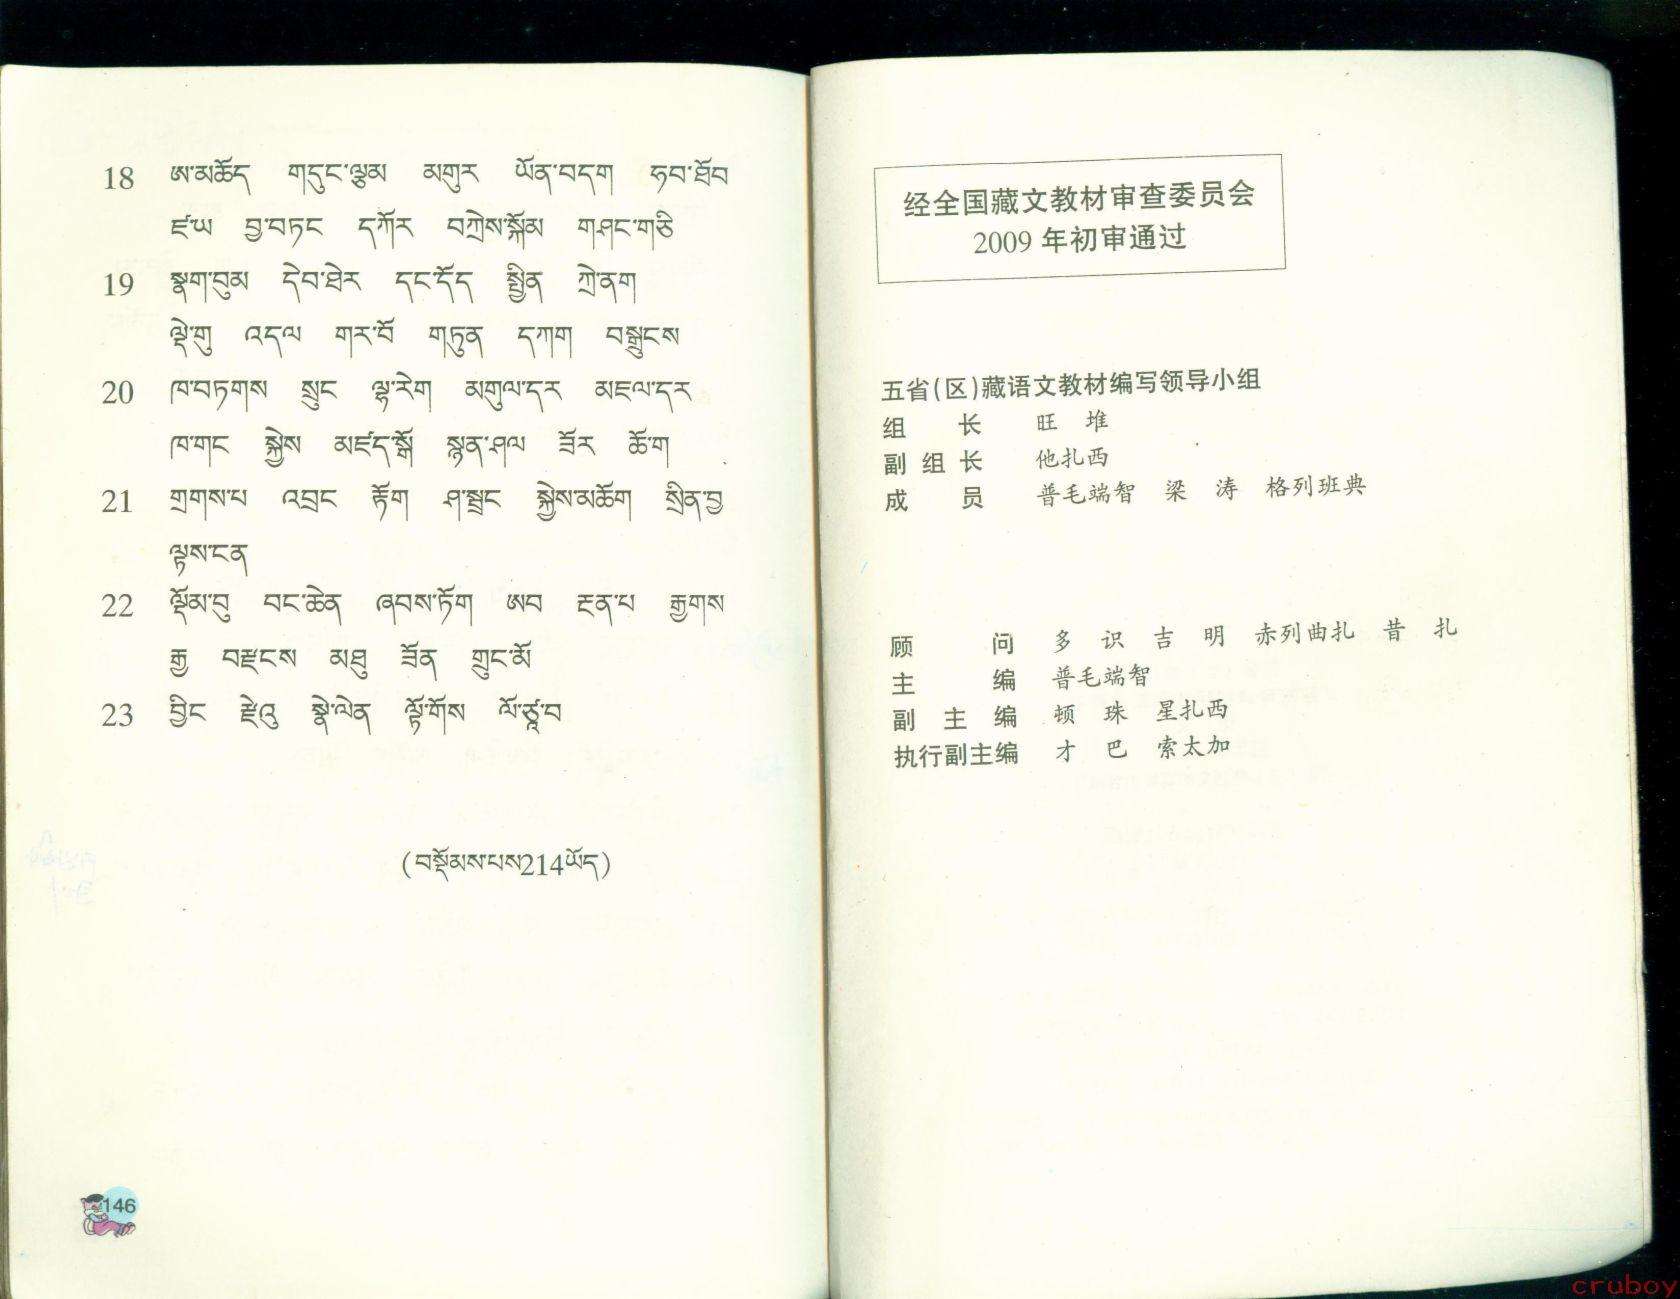 18 ཨ་མཆོད གདུང་ལྕམ མགུར ཡོན་བདག ཧབ་ཐོབ
ཛ་ཡ བྱ་བཏང དཀོར བཀྲེས་སྐོམ གཤང་གཅི
19 སྣག་བུམ དེབ་ཐེར དང་དོད སྤྱིན ཀྲེ་ནག
ལྡེ་གུ འདལ གར་པོ གཏུན དཀག བསྒྲུངས
20 ཁ་བཏགས སྲུང ལྷ་རེག མགུལ་དར མཇལ་དར
ཁ་གང སྐྱེས མཛད་སྒོ སྙན་ཤལ ཟོར ཆོ་ག
21 གྲགས་པ འབྲང རྟོག ཤ་སྦྲང སྐྱེས་མཆོག སྲིན་བྱ
ལྟས་ངན
22 ལྡོམ་བུ བང་ཆེན ཞབས་ཏོག ཨབ རྔན་པ རྒྱགས
རྒྱ བརྫངས མཐུ ཟོན གྲུང་མོ
23 བྱིང རྫེའུ སྣེ་ལེན ལྟོ་གོས ལོ་ཙཱ་བ
(བསྡོམས་པས214ཡོད)
146
经全国藏文教材审查委员会
2009 年初审通过
五省(区)藏语文教材编写领导小组
组 长 旺 堆
副 组 长 他扎西
成 员 普毛端智 梁 涛 格列班典
顾 问 多 识 吉 明 赤列曲扎 昔 扎
主 编 普毛端智
副 主 编 顿 珠 星扎西
执行副主编 才 巴 索太加
cruboy